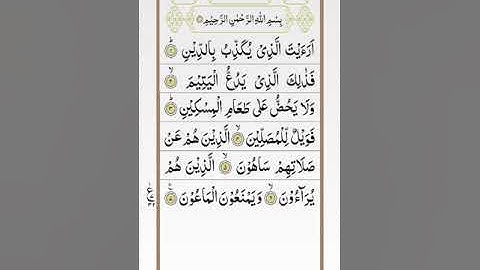 بِسْمِ اللهِ الرَّحْمٰنِ الرَّحِيْمِ
اَرَءَيْتَ الَّذِىْ يُكَذِّبُ بِالدِّيْنِ ؕ ۝۱
فَذٰلِكَ الَّذِىْ يَدُعُّ الْيَتِيْمَ ۙ ۝۲
وَلَا يَحُضُّ عَلٰى طَعَامِ الْمِسْكِيْنِ ؕ ۝۳
فَوَيْلٌ لِّلْمُصَلِّيْنَ ۙ ۝۴ الَّذِيْنَ هُمْ عَنْ
صَلَاتِهِمْ سَاهُوْنَ ۙ ۝۵ الَّذِيْنَ هُمْ
يُرَآءُوْنَ ۙ ۝۶ وَيَمْنَعُوْنَ الْمَاعُوْنَ